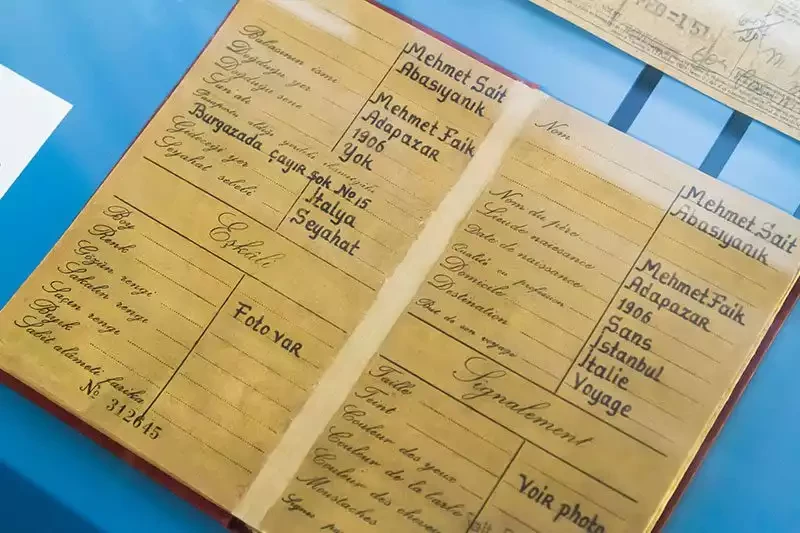 Mehmet Sait
Abasıyanık
Babasının ismi Mehmet Faik
Doğduğu yer Adapazar
Doğduğu sene 1906
San'atı Yok
Burgazada Çayır Sok No 15
Gideceği yer İtalya
Seyahat sebebi Seyahat
Eşkâli
Boy
Renk
Gözün rengi
Sakalın rengi
Saçın rengi
Bıyık
Sabit alâmeti farika
Foto var
No 312645
Nom Mehmet Sait
Abasıyanık
Nom du père Mehmet Faik
Lieu de naissance Adapazar
Date de naissance 1906
Qualité ou profession Sans
Domicile İstanbul
Destination İtalie
But de son voyage Voyage
Signalement
Taille
Teint
Couleur des yeux
Couleur de la barbe
Couleur des cheveux
Moustaches
Voir photo